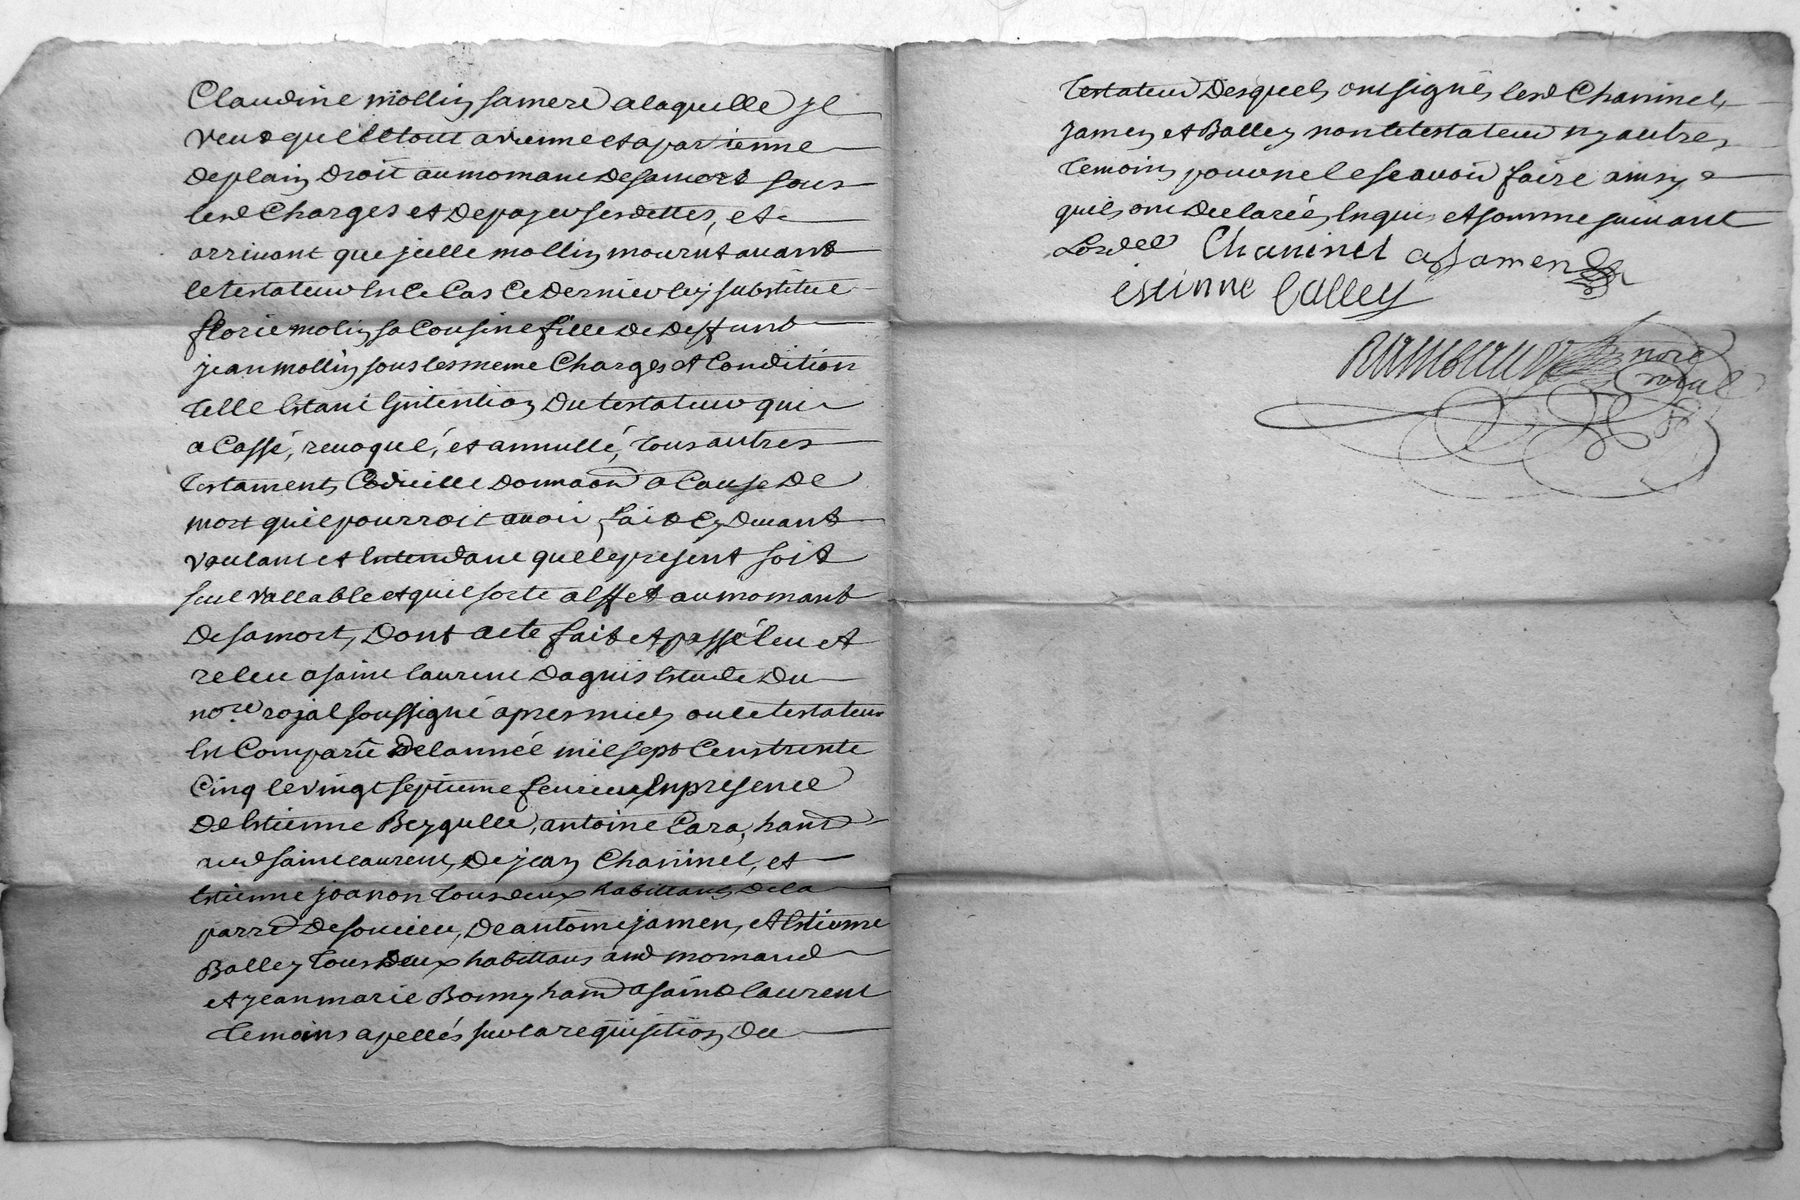 Claudine mollin sa mere a laquelle jl
veut que le tout avienne et apartienne
de plain droit au momant de sa mort sous
lesd Charges et de payer ses dettes, et
arrivant que jcelle mollin mourut avant
le testateur En Ce Cas Ce dernier luy substitue
florie molin sa Cousine fille de deffunt
jean mollin sous les meme Charges et Condition
telle Estant l'jntention du testateur qui
a Cassé, revoqué, et annullé, tous autres
testaments Codicille donnaon a Cause de
mort quil pourroit avoir fait Cy devant
voulant et Entendant que le present soit
seul vallable et quil sorte a Effet au momant
de sa mort, dont acte fait et passé leu et
releu a saint laurent dagnis Etude du
nore royal soussigné apres midy ou le testateur
Est Comparu de lannée mil sept Cens trente
Cinq le vingt septieme fevrier En presence
de Estienne Beyqulle, antoine Cara, hants
aud saint laurent, de jean Chaninel, et
Estienne joanon tous deux habittants de la
parre de soucieu, de antoine jamen, et Estienne
Balley tous deux habittans aud mornand
et jean marie Bonny hant a saint laurent
temoins apellés sur la requisition du
testateur desquels ont signés lesd Chaninel,
jamen et Balley non le testateur ny autres
temoins pour ne le scavoir faire ainsy
quils ont declarés Enquis et somme suivant
Lordee Chaninel a jamen
estienne balley
Rambaud nore
royal